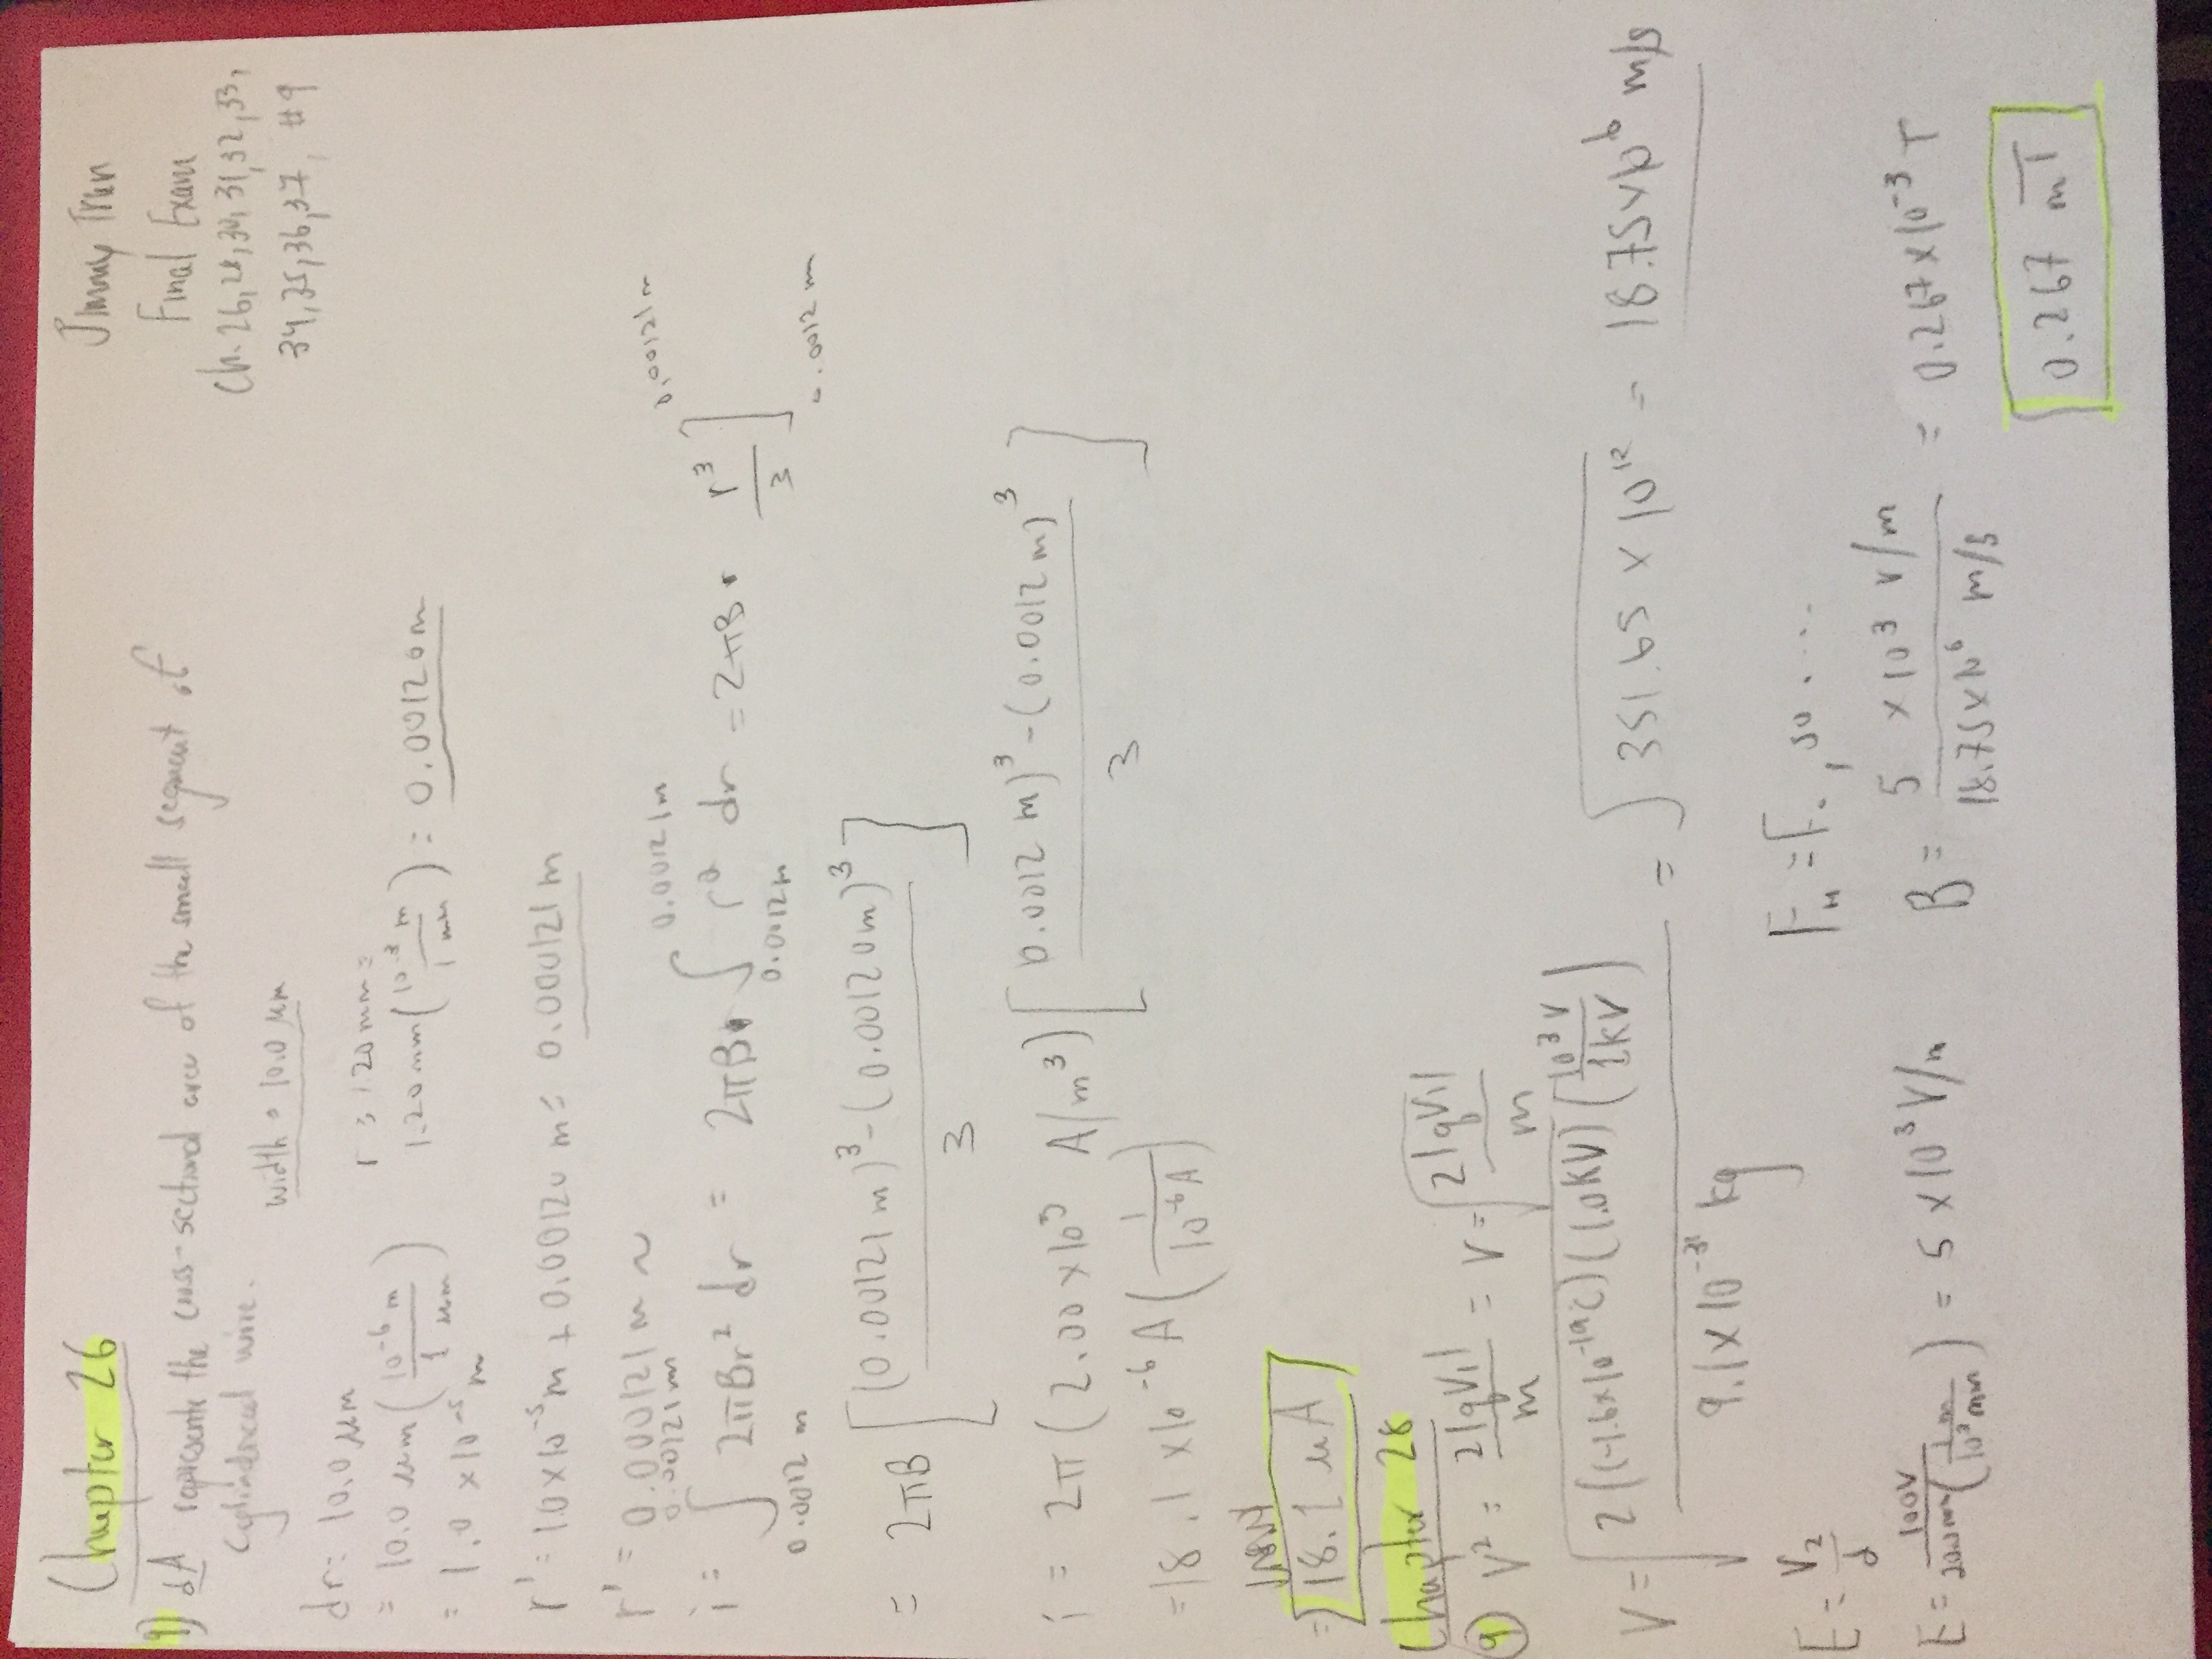 Chapter 26
Jimmy Tran
Final Exam
Ch. 26, 28, 30, 31, 32, 33,
34, 35, 36, 37, #9
9) dA represents the cross-sectional area of the small segment of
cylindrical wire.
width = 10.0 μm
dr = 10.0 μm
= 10.0 μm (10⁻⁶ m / 1 μm)
= 1.0 × 10⁻⁵ m
r = 1.20 mm =
1.20 mm (10⁻³ m / 1 mm) = 0.00120 m
r' = 10 × 10⁻⁵ m + 0.00120 m = 0.000121 m
r' = 0.000121 m ~
i = ∫ 0.0012 m 0.00121 m 2πBr² dr = 2πB · ∫ 0.0012 m 0.00121 m r² dr = 2πB · r³/3 ] 0.0012 m 0.00121 m
= 2πB [ (0.00121 m)³ - (0.00120 m)³ / 3 ]
i = 2π (2.00 × 10⁵ A/m³) [ 0.0012 m)³ - (0.0012 m)³ / 3 ]
= 18.1 × 10⁻⁶ A (1 / 10⁻⁶ A)
= 18.1 μA
Chapter 28
9) V² = 2|qV₁| / m = V = √(2|qV₁| / m)
V = √(2 ((-1.6 × 10⁻¹⁹ C) (1.0 kV) (10³ V / 1 kV) / 9.1 × 10⁻³¹ kg) = √351.65 × 10¹² = 18.75 × 10⁶ m/s
E = V₂ / d
E = 100V / 20.0 mm (1 m / 10³ mm) = 5 × 10³ V/m
so ....
B = 5 × 10³ V/m / 18.75 × 10⁶ m/s = 0.267 × 10⁻³ T
0.267 mT